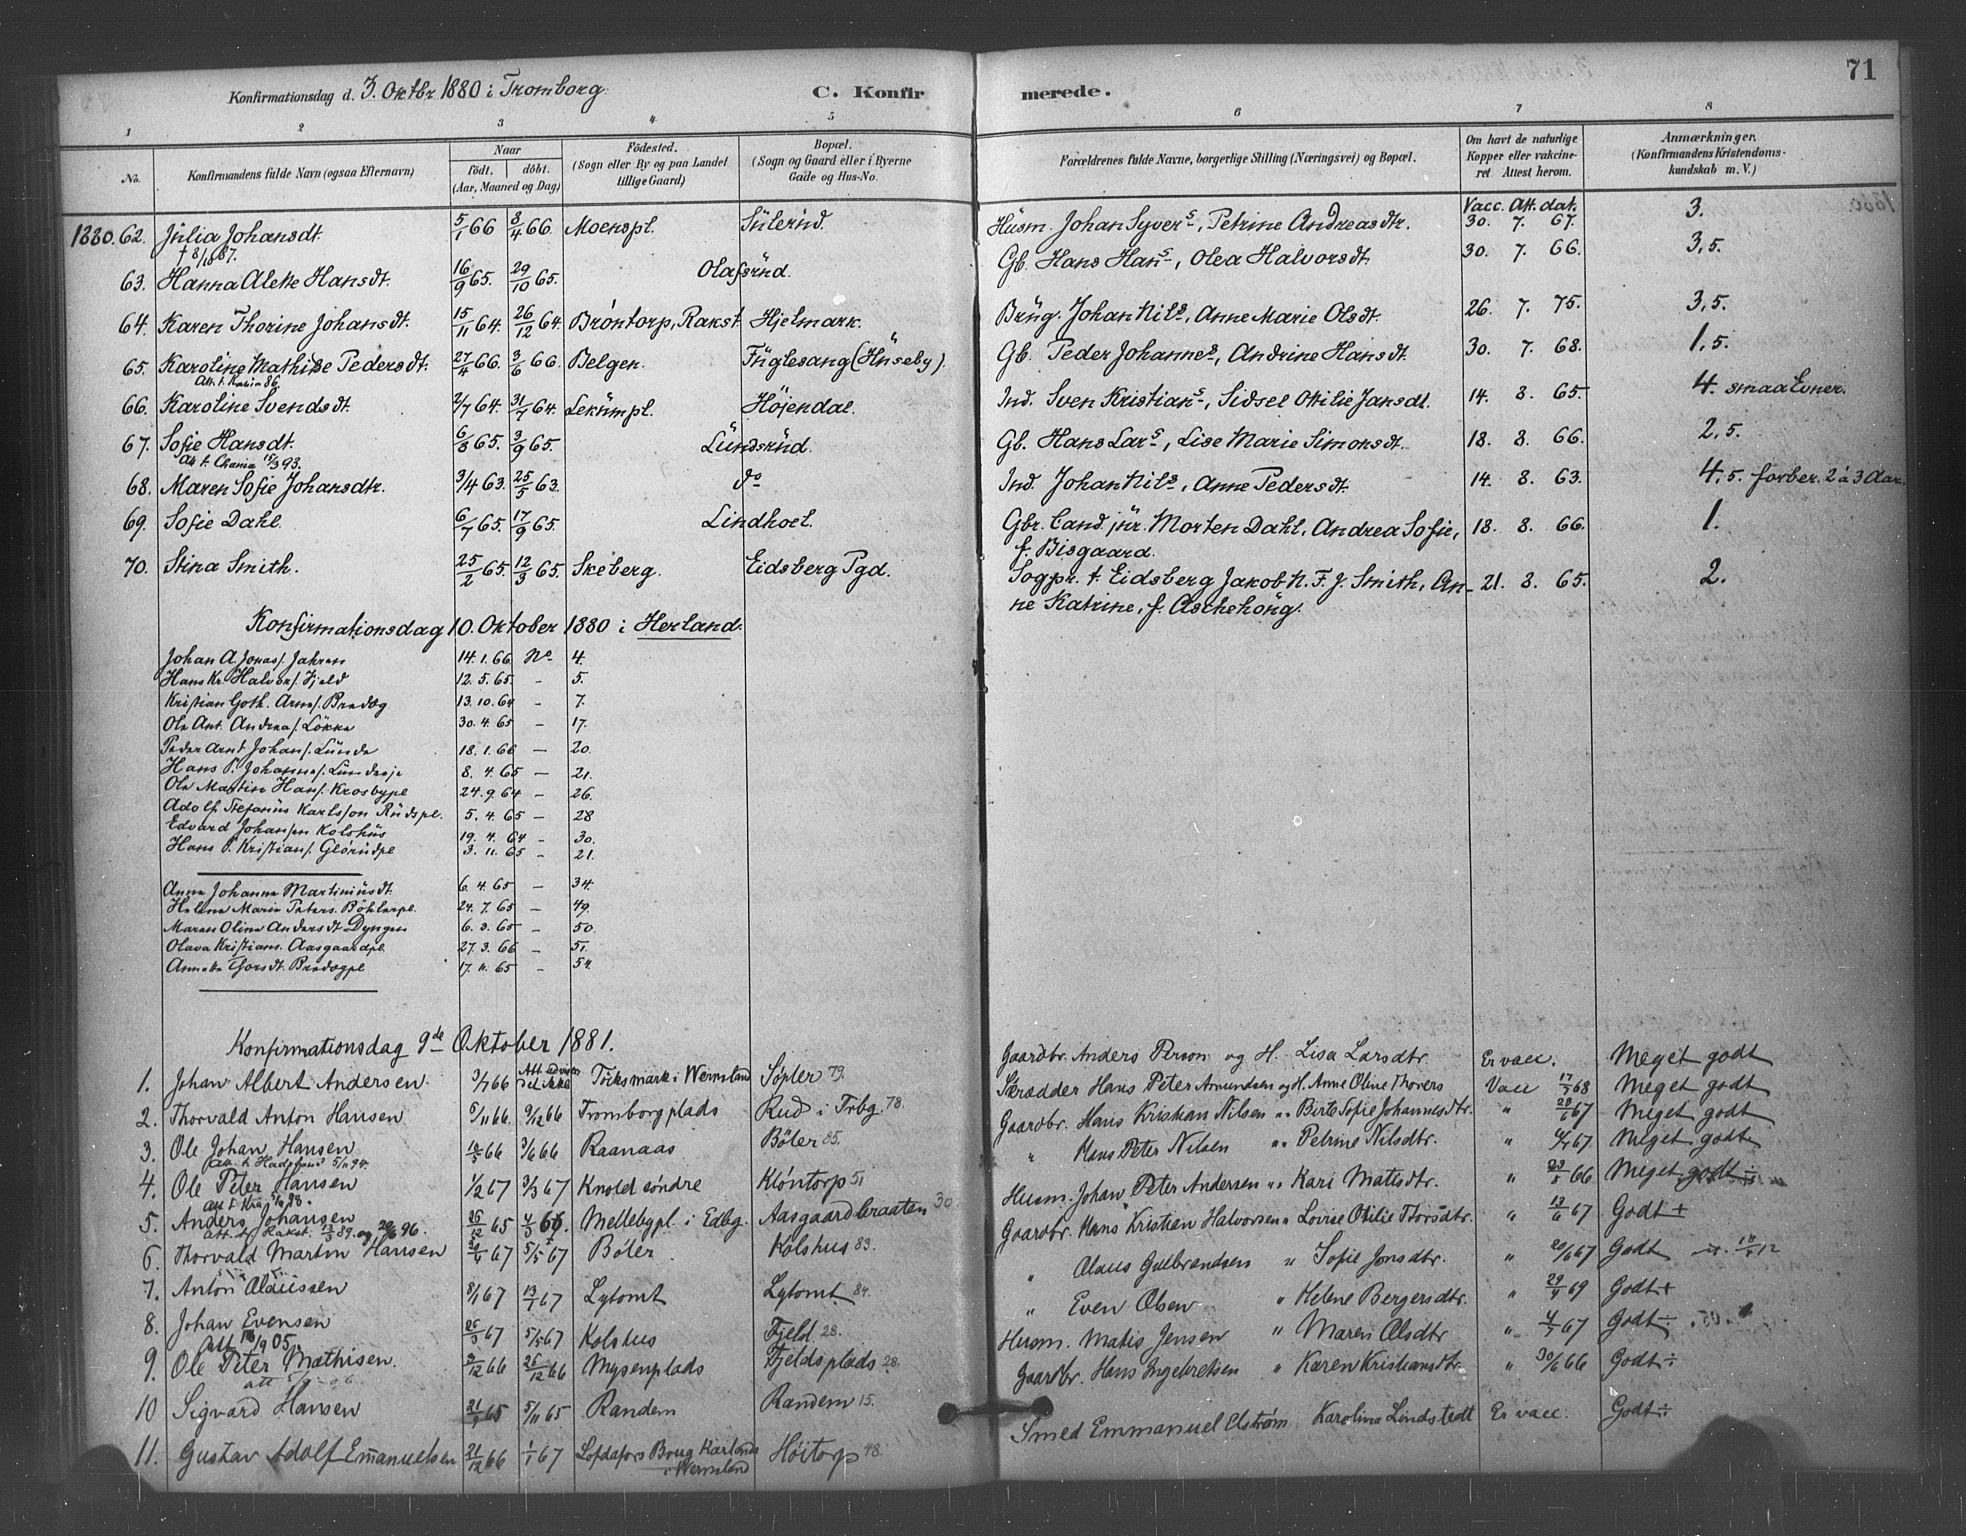 71
Konfirmationsdag d. 3. Oktbr 1880 i Tromborg
C. Konfir merede.
1 2 3 4 5 6 7 8
No.
Konfirmandens fulde Navn (ogsaa Efternavn)
Naar
födt. döbt.
(Aar, Maaned og Dag)
Födested.
(Sogn eller By og paa Landet
tillige Gaard)
Bopæl.
(Sogn og Gaard eller i Byerne
Gade og Hus-No.
Forældrenes fulde Navne, borgerlige Stilling (Næringsvei) og Bopæl.
Om havt de naturlige
Kopper eller vakcine-
ret Attest herom.
Anmærkninger.
(Konfirmandens Kristendoms-
kundskab m. V.)
Vacc. Att. dat.
1880. 62. Julia Johansdt. 5/1 66 8/4 66. Moenspl. Sulerud. Husm. Johan Syvers, Petrine Andreasdtr. 30. 7. 67. 3.
† 8/10 87.
63. Hanna Alette Hansdt. 16/9 65. 29/10 65. Olafsrud. Gb. Hans Hans, Olea Halvorsdt. 30. 7. 66. 3,5.
64. Karen Thorine Johansdt. 15/11 64. 26/12 64. Bröntorp, Rakst. Hjelmark. Brug. Johan Nils, Anne Marie Olsdt. 26. 7. 75. 3,5.
65. Karoline Mathise Pedersdt. 27/4 66. 3/6 66. Belgen. Fuglesang (Huseby). Gb. Peder Johannes, Andrine Hansdt. 30. 7. 68. 1,5.
66. Karoline Svendsdt. 2/7 64. 31/7 64. Lekumpl. Höjendal. Ind. Sven Kristians, Sidsel Otilie Jansdt. 14. 8. 65. 4. smaa Evner.
67. Sofie Hansdt. 6/8 65. 3/9 65. Lundsrud. Gb. Hans Lars, Lise Marie Simonsdt. 18. 8. 66. 2,5.
Att. t. Chania 15/3 93.
68. Maren Sofie Johansdtr. 3/4 63. 25/5 63. do Ind. Johan Nils, Anne Pedersdt. 14. 8. 63. 4,5. forber. 2 à 3 Aar.
69. Sofie Dahl. 6/7 65. 17/9 65. Lindhoel. Gbr. Cand. jur. Morten Dahl, Andrea Sofie, 18. 8. 66. 1.
f. Bisgaard.
70. Stina Smith. 25/2 65. 12/3 65. Skeberg. Eidsberg Pgd. Sogpr. t. Eidsberg Jakob N. F. J. Smith, An- 21. 8. 65. 2.
ne Katrine, f. Aschehoug.
Konfirmationsdag 10. Oktober 1880 i Herland.
Johan A. Jonas/. Jahren 14. 1. 66. No 4.
Hans Kr. Halvors/. Fjeld 12. 5. 65. - 5.
Kristian Goth. Arnes/. Bredeg 13. 10. 64 - 7.
Ole Ant. Andreas/. Lökke 30. 4. 65 - 17.
Peder Arnt Johans/. Lunde 18. 1. 66 - 20.
Hans P. Johannes/. Lundeeje 8. 4. 65 - 21.
Ole Martin Hans/. Krosbypl 24. 9. 64 - 26.
Adolf Stefanus Karlsson Rudspl. 5. 4. 65 - 28
Edvard Johansen Kolshus 19. 4. 64 - 30.
Hans P. Kristians/. Glörudpl 3. 11. 65 - 21.
Anne Johanne Martiniusdt. 6. 4. 65 - 34.
Helene Marie Peters. Böhlerpl. 24. 7. 65 - 49.
Maren Oline Andersdt Dyngen 6. 3. 65 - 50.
Olava Kristians. Aasgaardpl. 27. 3. 66 - 51.
Annette Thorsdt. Bredegpl 17. 11. 65 - 54.
Konfirmationsdag 9de Oktober 1881.
1. Johan Albert Andersen. 3/7 66 Töcksmark i Wermland Søpler 79. Gaardbr. Anders Person og H. Lisa Larsdtr. Er vacc. Meget godt
2. Thorvald Anton Hansen 5/11 66. 9/12 66 Tromborgplads Rud i Trbg. 78. Skrædder Hans Peter Amundsen og H. Anne Oline Thovers Vacc 17/7 68 Meget godt
3. Ole Johan Hansen 3/6 66 Raanaas Böler 85. Gaardbr. Hans Kristian Nilsen " Berte Sofie Johannesdtr. " 28/6 67 Meget godt
Att. t. Hadeland 5/11 94.
4. Ole Peter Hansen 1/2 67 3/3 67 Knold söndre Klöntorp 51 " Hans Peter Nilsen " Petrine Nilsdtr. " 4/7 67 Meget godt
5. Anders Johansen 26/12 65 4/3 66. Mellebypl. i Edbg. Aasgaardbraaten 30. Husm. Johan Peter Andersen " Kari Mattsdtr. " 23/5 66 Meget godt
Att. t. Rakst. 13/3 89. og 29/6 96.
6. Thorvald Martin Hansen 30/4 67 5/5 67 Böler Kolshus 83. Gaardbr. Hans Kristien Halvorsen " Lovise Otilie Thorsdtr. " 13/6 67 Godt +
7. Anton Olaussen 8/1 67 13/1 67 Lytomt Lytomt 84. " Olaus Gulbrandsen " Sofie Jonsdtr. " 20/6 67 Godt
8. Johan Evensen 26/3 67 5/5 67 Kolshus Fjeld 28. " Even Olsen " Helene Bergersdtr. " 29/4 69 Godt +
Att 05.
9. Ole Peter Mathisen. 9/12 66 26/12 66 Mysenplads Fjeldsplads 28. Husm. Matis Jensen " Maren Olsdtr " 4/7 67 Godt ÷
10 Sigvard Hansen 21/9 65 5/11 65 Randem Randem 15. Gaardbr. Hans Ingebretsen " Karen Kristiansdtr " 30/6 66 Godt ÷
11. Gustav Adolf Emanuelsen 21/12 66 1/1 67 Lofdafors Brug Karlands Höitorp 48. Smed Emmanuel Elström Karolina Lindstedt Er vacc. Godt ÷
i Wermland